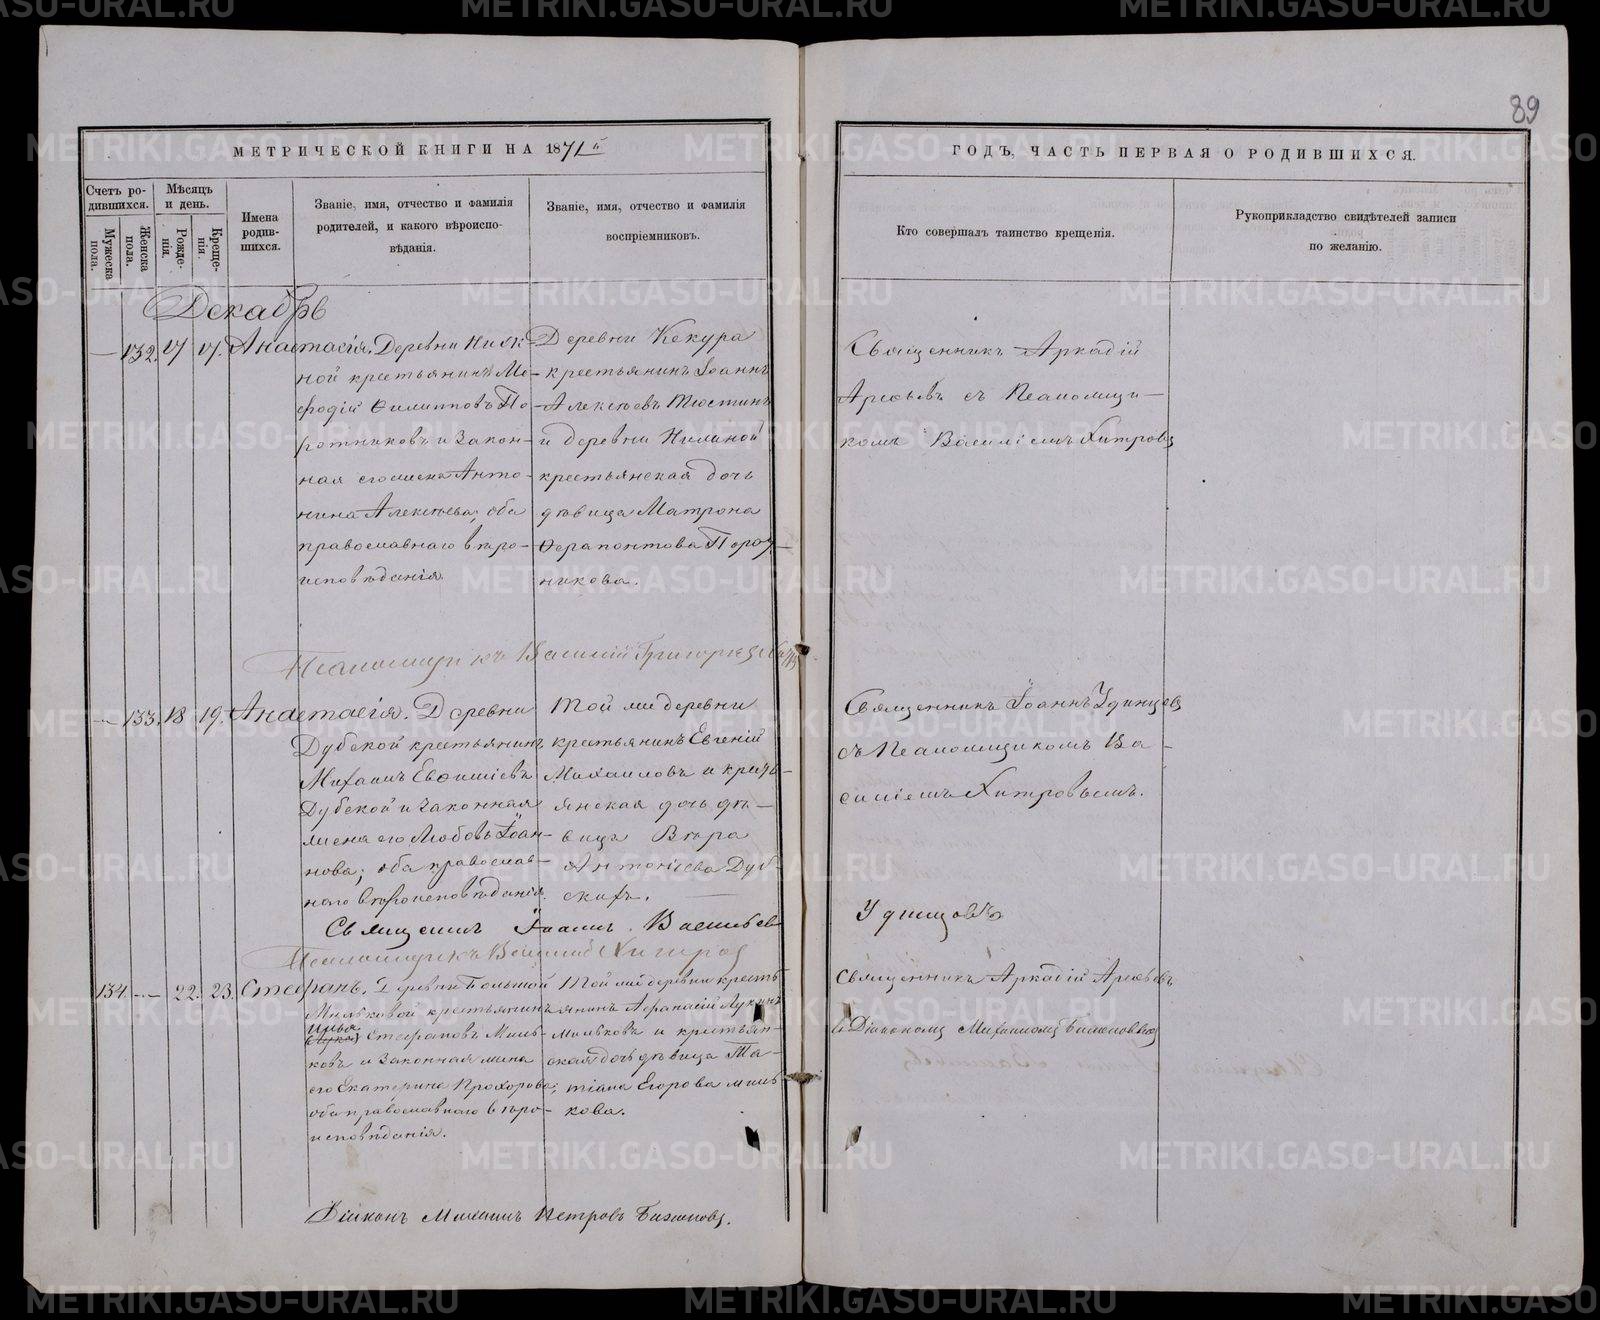 89
МЕТРИЧЕСКОЙ КНИГИ НА 1871й
ГОДЪ, ЧАСТЬ ПЕРВАЯ О РОДИВШИХСЯ.
Счетъ ро-
дившихся.
Мужеска
пола.
Женска
пола.
Мѣсяцъ
и день.
Рожде-
нія.
Креще-
нія.
Имена
родив-
шихся.
Званіе, имя, отчество и фамилія
родителей, и какого вѣроиспо-
вѣданія.
Званіе, имя, отчество и фамилія
воспріемниковъ.
Кто совершалъ таинство крещенія.
Рукоприкладство свидѣтелей записи
по желанію.
Декабрь
— 132. 17 17. Анастасія. Деревни
ной крестьянинъ Ме-
фодій Филипповъ По
ротниковъ и закон-
ная его жена Анто-
нина Алексѣева; оба
православнаго вѣро-
исповѣданія.
Деревни Кекура
крестьянинъ Іоаннъ
Алексѣевъ
и деревни
крестьянская дочь
дѣвица Матрона
Ферапонтова Порот-
никова.
Священникъ Аркадій
Арефьевъ съ Псаломщи-
комъ Василіемъ Хитровым
Псаломщикъ Василій Григорьев
— 133. 18 19. Анастасія. Деревни
Дубской крестьянинъ
Михаилъ Евфиміевъ
Дубской и законная
жена его Любовь Іоан-
нова; оба православ-
наго вѣроисповѣданія.
Той же деревни
крестьянинъ Евгеній
Михаиловъ и кресть-
янская дочь дѣ-
вица Вѣра
Антоніева Дуб
скихъ.
Священникъ Іоаннъ Удинцев
съ Псаломщикомъ Ва-
силіемъ Хитровымъ.
Священникъ Іоаннъ Васильев Удинцовъ
Псаломщикъ Василий Хитров
134. — 22. 23. Стефанъ. Деревни Большой
Мильковой крестьянинъ
Илья
Стефановъ Миль-
ковъ и законная жена
его Екатерина Прохорова;
оба православнаго вѣро-
исповѣданія.
Той же деревни кресть
янинъ Афанасій Лукинъ
Мильковъ и крестьян-
ская дочь дѣвица Та-
тіана Егорова Миль-
кова.
Священникъ Аркадій Арефьевъ
с Діакономъ Михаиломъ
Діаконъ Михаилъ Петровъ
METRIKI.GASO-URAL.RU